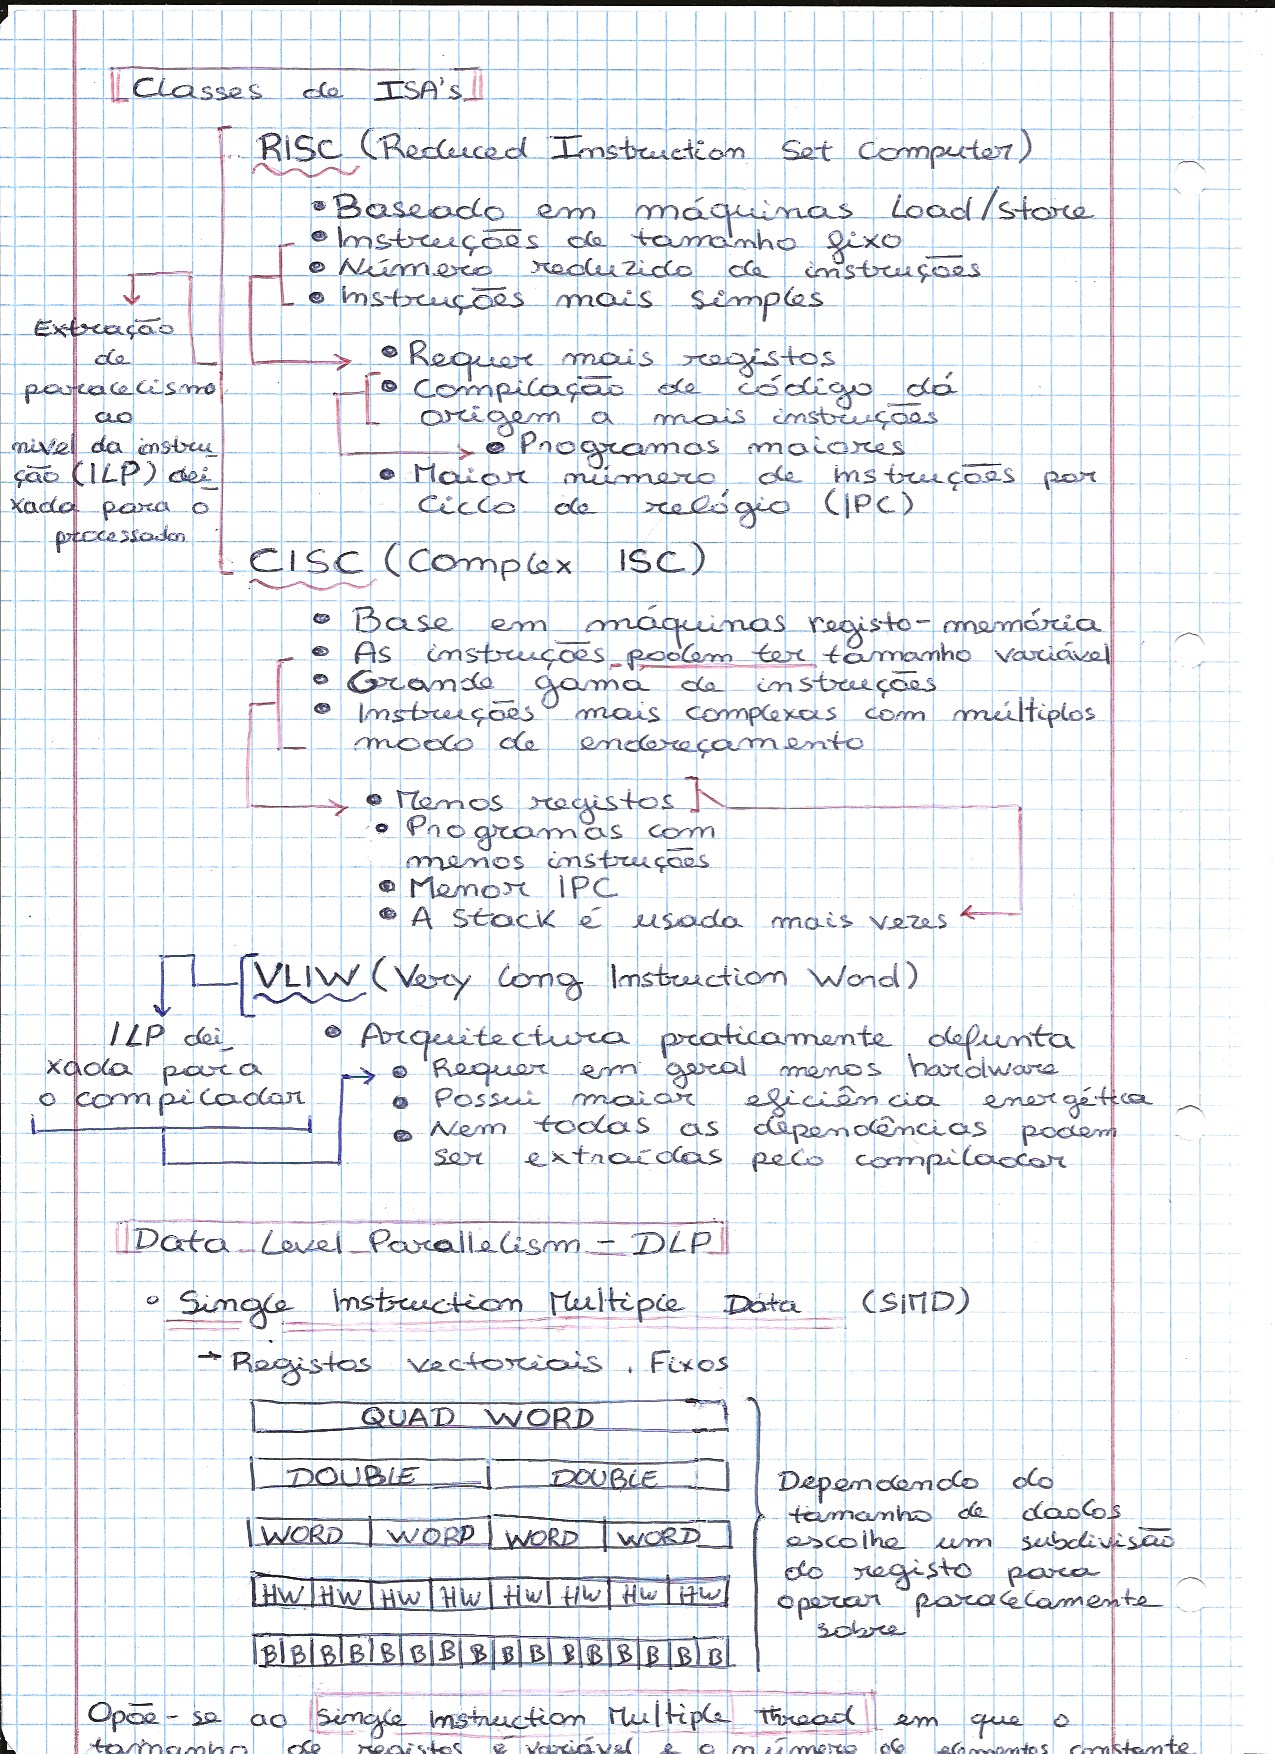 Classes de ISA's
RISC (Reduced Instruction Set Computer)
• Baseado em máquinas Load/Store
• Instruções de tamanho fixo
• Número reduzido de instruções
• Instruções mais simples
Extração
de
paralelismo
ao
nível da instru
ção (ILP) dei_
xada para o
processador
• Requer mais registos
• Compilação de código dá
origem a mais instruções
• Programas maiores
• Maior número de instruções por
Ciclo de relógio (IPC)
CISC (Complex ISC)
• Base em máquinas registo-memória
• As instruções podem ter tamanho variável
• Grande gama de instruções
• Instruções mais complexas com múltiplos
modo de endereçamento
• Menos registos
• Programas com
menos instruções
• Menor IPC
• A Stack é usada mais vezes
VLIW (Very Long Instruction Word)
ILP dei_
xada para
o compilador
• Arquitectura praticamente defunta
• Requer em geral menos hardware
• Possui maior eficiência energética
• Nem todas as dependências podem
ser extraídas pelo compilador
Data Level Parallelism - DLP
• Single Instruction Multiple Data (SIMD)
→ Registos vectoriais. Fixos
QUAD WORD
DOUBLE DOUBLE
WORD WORD WORD WORD
HW HW HW HW HW HW HW HW
B B B B B B B B B B B B B B B B
Dependendo do
tamanho de dados
escolhe um subdivisão
do registo para
operar paralelamente
sobre
Opõe-se ao Single Instruction Multiple Thread em que o
tamanho de registos é variável e o número de elementos constante